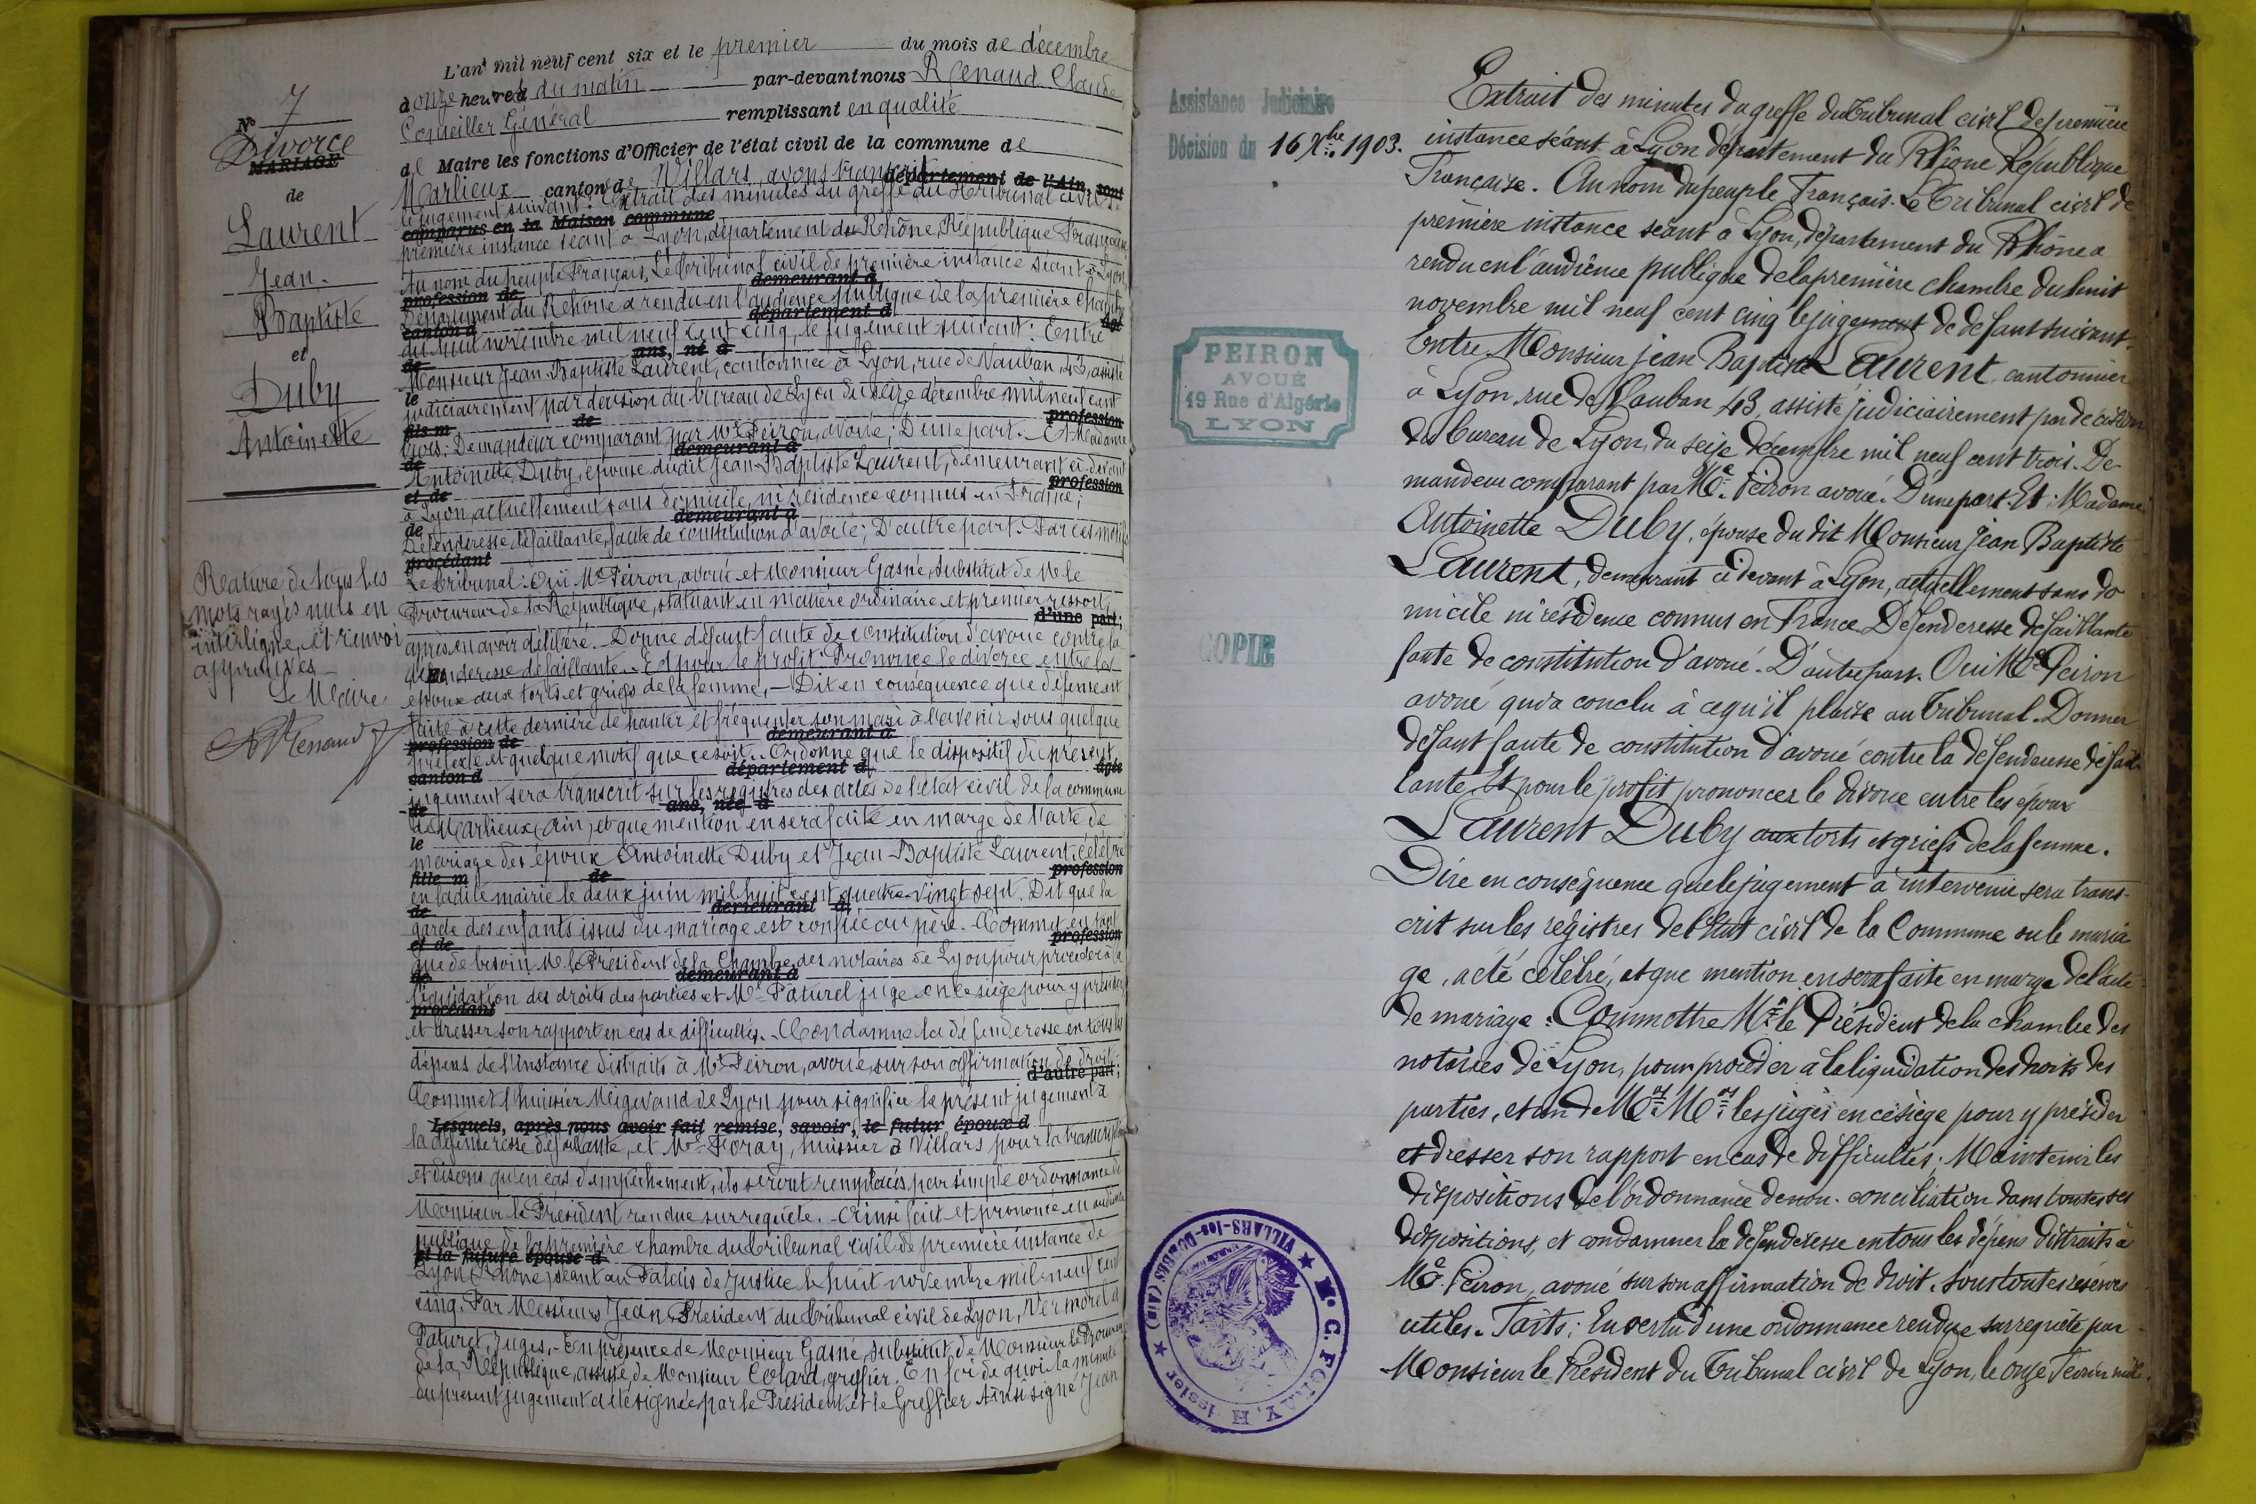 L'an mil neuf cent six et le premier du mois de décembre
à onze heures du matin par-devant nous Renaud Claude
Conseiller Général remplissant en qualité
de Maire les fonctions d'Officier de l'état civil de la commune de
Marlieux canton de Villars, avons transcrit département de l'Ain, sont
le jugement suivant: Extrait des minutes du greffe du Tribunal civil de
comparus en la Maison commune
première instance séant à Lyon, département du Rhône, République Française
Au nom du peuple Français, Le Tribunal civil de première instance séant à Lyon,
profession de demeurant à
Département du Rhône a rendu en l'audience publique de la première chambre
canton d département d âgé
du huit novembre mil neuf cent cinq, le jugement suivant: Entre
de ans, né à
Monsieur Jean-Baptiste Laurent, cantonnier à Lyon, rue de Vauban, 43, assisté
le
judiciairement par décision du bureau de Lyon du seize décembre mil neuf cent
fils m de profession
trois; Demandeur comparant par Me Peiron, avoué; D'une part. Et Madame
de demeurant à
Antoinette Duby, épouse dudit Jean-Baptiste Laurent, demeurant ci-devant
et de profession
à Lyon, actuellement sans domicile, ni résidence connus en France;
de demeurant à
Défenderesse défaillante, faute de constitution d'avoué; D'autre part. Par ces motifs
procédant
Le Tribunal: Ouï Me Peiron, avoué et Monsieur Gasne, Substitut de M. le
Procureur de la République, statuant en matière ordinaire et premier ressort,
d'une part;
après en avoir délibéré. Donne défaut faute de constitution d'avoué contre la
défenderesse défaillante. Et pour le profit: Prononce le divorce entre les
époux aux torts et griefs de la femme, — Dit en conséquence que défense est
faite à cette dernière de hanter et fréquenter son mari à l'avenir sous quelque
profession de demeurant à
prétexte et quelque motif que ce soit. Ordonne que le dispositif du présent
canton d département d âgée
jugement sera transcrit sur les registres des actes de l'état civil de la commune
de ans, née à
de Marlieux (Ain) et que mention en sera faite en marge de l'acte de
le
mariage des époux Antoinette Duby et Jean-Baptiste Laurent, célébré
fille m de profession
en ladite mairie le deux juin mil huit cent quatre-vingt sept. Dit que la
de demeurant à
garde des enfants issus du mariage est confiée au père. Commet en tant
et de profession
que de besoin M. le Président de la Chambre des notaires de Lyon pour procéder à la
de demeurant à
liquidation des droits des parties et Mr Paturel juge en ce siège pour y présider
procédant
et dresser son rapport en cas de difficultés. Condamne la défenderesse en tous les
dépens de l'Instance distraits à Me Peiron, avoué, sur son affirmation de droit.
d'autre part;
Commet l'huissier de Lyon pour signifier le présent jugement à
Lesquels, après nous avoir fait remise, savoir, le futur époux d
la défenderesse défaillante, et Me Foray, huissier à Villars pour la transcription
et disons qu'en cas d'empêchement, ils seront remplacés par simple ordonnance de
Monsieur le Président rendue sur requête. Ainsi fait et prononcé en audience
publique de la première chambre du tribunal civil de première instance de
et la future épouse d
Lyon (Rhône) séant au Palais de Justice le huit novembre mil neuf cent
cinq. Par Messieurs Jean, Président du tribunal civil de Lyon, Vermorel et
Paturel, Juges, – En présence de Monsieur Gasne, Substitut de Monsieur le Procureur
de la République, assisté de Monsieur Colard, greffier, En foi de quoi la minute
du présent jugement a été signée par le Président et le Greffier Ainsi signé Jean
No 7
Divorce
MARIAGE
de
Laurent
Jean-
Baptiste
et
Duby
Antoinette
Rature de tous les
mots rayés nuls en
interligne, et renvoi
approuvés
Le Maire
Renaud
Assistance Judiciaire
Décision du 16 Xbre 1903.
PEIRON
AVOUÉ
19 Rue d'Algérie
LYON
COPIE
M. C. FORAY, Huissier
VILLARS-les-DOMBES (AIN)
Extrait des minutes du greffe du Tribunal civil de première
instance séant à Lyon département du Rhône République
Française. Au nom du peuple Français. Le Tribunal civil de
première instance séant à Lyon, département du Rhône a
rendu en l'audience publique de la première chambre du huit
novembre mil neuf cent cinq le jugement de défaut suivant.
Entre. Monsieur Jean Baptiste Laurent cantonnier
à Lyon, rue de Vauban 43, assisté judiciairement par décision
du bureau de Lyon, du seize décembre mil neuf cent trois. De
mandeur comparant par Me Peiron avoué. D'une part. Et: Madame
Antoinette Duby, épouse du dit Monsieur Jean Baptiste
Laurent, demeurant ci devant à Lyon, actuellement sans do
micile ni résidence connus en France Défenderesse défaillante
faute de constitution d'avoué. D'autre part. Oui Me Peiron
avoué qui a conclu à ce qu'il plaise au Tribunal. Donner
défaut faute de constitution d'avoué contre la défenderesse défail
lante Et pour le profit prononcer le divorce entre les époux
Laurent Duby aux torts et griefs de la femme.
Dire en conséquence que le jugement à intervenir sera trans-
crit sur les régistres de l'État civil de la Commune ou le maria
ge, a été célébré, et que mention en sera faite en marge de l'acte
de mariage: Commettre Mr le Président de la chambre des
notaires de Lyon, pour procéder à la liquidation des droits des
parties, et un de Mrs Mrs les juges en ce siège pour y présider
et dresser son rapport en cas de difficultés; Maintenir les
dispositions de l'ordonnance de non-conciliation dans toutes ses
dispositions, et condamner la défenderesse en tous les dépens distraits à
Me Peiron, avoué sur son affirmation de droit. sous toutes réserves
utiles. Faits: En vertu d'une ordonnance rendue sur requête par
Monsieur le Président du Tribunal civil de Lyon, le onze Février mil